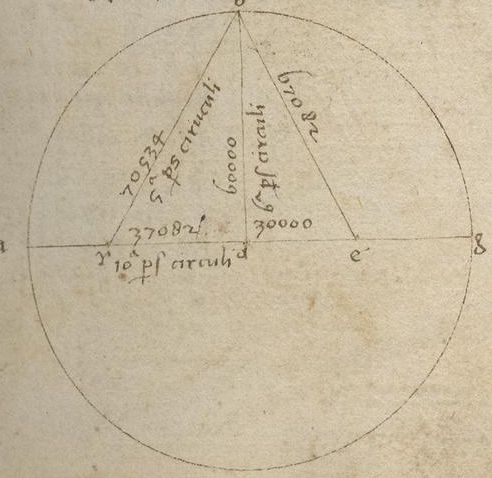 b
70534
5ª ps circuli
60000
6ª ps circuli
67082
37082
30000
a
10ª ps circuli
d
e
g